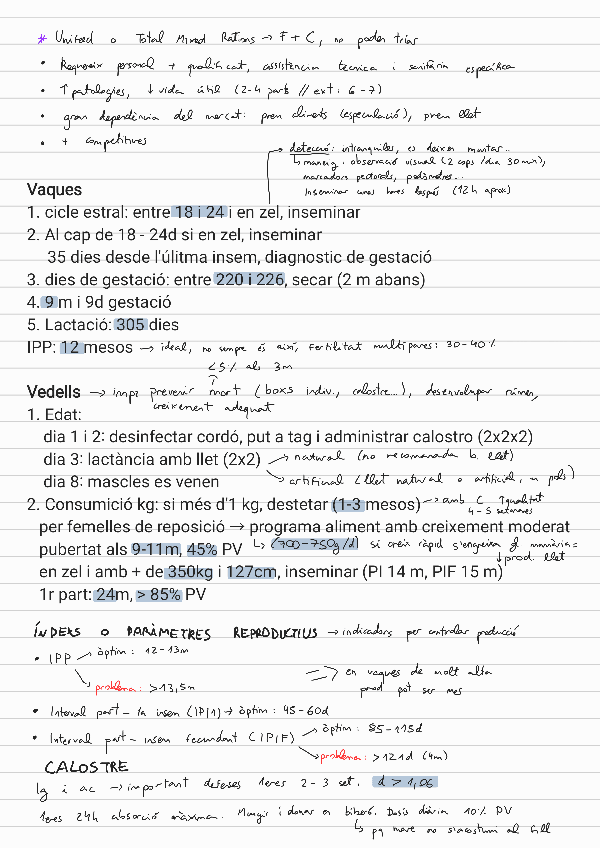 * Unifeed o Total Mixed Rations → F + C, no poden triar
• Requereix personal + qualificat, assistencia tecnica i sanitària específica
• ↑ patologies, ↓ vida útil (2-4 parts // ext: 6-7)
• gran dependència del mercat: preu aliments (especulació), preu llet
• + competitives
→ detecció: intranquiles, es deixen muntar..
↳ maneig: observació visual (2 cops /dia 30 min),
marcadors pectorals, podòmetres..
Inseminar unes hores després (12h aprox)
Vaques
1. cicle estral: entre 18 i 24 i en zel, inseminar
2. Al cap de 18 - 24d si en zel, inseminar
35 dies desde l'úlitma insem, diagnostic de gestació
3. dies de gestació: entre 220 i 226, secar (2 m abans)
4. 9 m i 9d gestació
5. Lactació: 305 dies
IPP: 12 mesos → ideal, no sempre és així, Fertilitat multipares: 30-40%
<5% als 3m
Vedells → imp: prevenir mort (boxs indiv., calostre...), desenvolupar rúmen,
creixement adequat
1. Edat:
dia 1 i 2: desinfectar cordó, put a tag i administrar calostro (2x2x2)
dia 3: lactància amb llet (2x2) → natural (no recomanada b. llet)
→ artificial (llet natural o artificial, en pols)
dia 8: mascles es venen
2. Consumició kg: si més d'1 kg, destetar (1-3 mesos) → amb C ↑qualitat
4-5 setmanes
per femelles de reposició → programa aliment amb creixement moderat
pubertat als 9-11m, 45% PV ↳ (700-750g/d) si creix ràpid s'engreixa gl mamària =
↓prod. llet
en zel i amb + de 350kg i 127cm, inseminar (PI 14 m, PIF 15 m)
1r part: 24m, > 85% PV
ÍNDEXS O PARÀMETRES REPRODUCTIUS → indicadors per controlar producció
• IPP → òptim: 12-13m
→ problema: >13,5m
=> en vaques de molt alta
prod pot ser mes
• Interval part - 1a insem (IP/1) → òptim: 45-60d
• Interval part - insem fecundant (IP/F) → òptim: 85-115d
→ problema: >121d (4m)
CALOSTRE
Ig i ac → important defeses 1eres 2-3 set. d > 1,06
1eres 24h absorció màxima. Munyir i donar en biberó. Dosis diària 10% PV
↳ pq mare no s'acostumi al fill